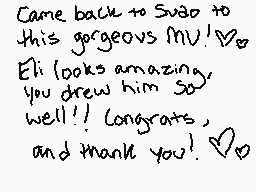 Came back to Sudo to
this gorgeous MV!♡♡
Eli looks amazing,
you drew him so
well!! Congrats,
and thank you! ♡♡